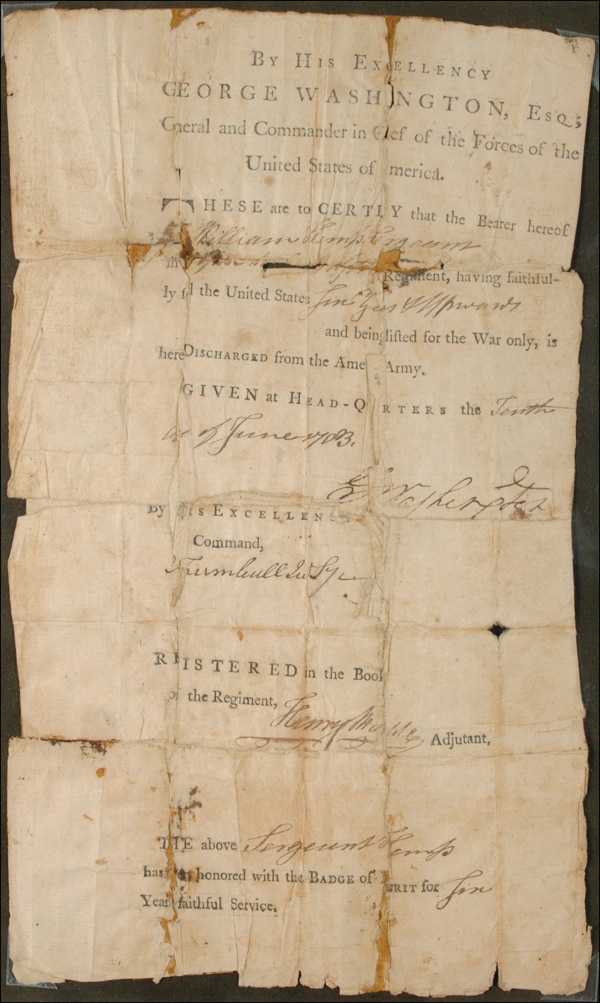 By His Exellency
GEORGE WASHINGTON, Esq;
General and Commander in Chef of the Forces of the
United States of merica.
THESE are to CERTIY that the Bearer hereof
William Kemp Sergeant
in Regiment, having faithful-
ly the United States Years & Upwards
and being listed for the War only, is
here Discharged from the Ame Army.
GIVEN at Head-Q rters the Tenth
of June 1783.
G Washington
By is Excellen
Command,
Trumbull
R ISTERED in the Book
of the Regiment,
Henry Adjutant.
THE above Sergeant Kemp
has honored with the Badge of erit for
Year faithful Service.